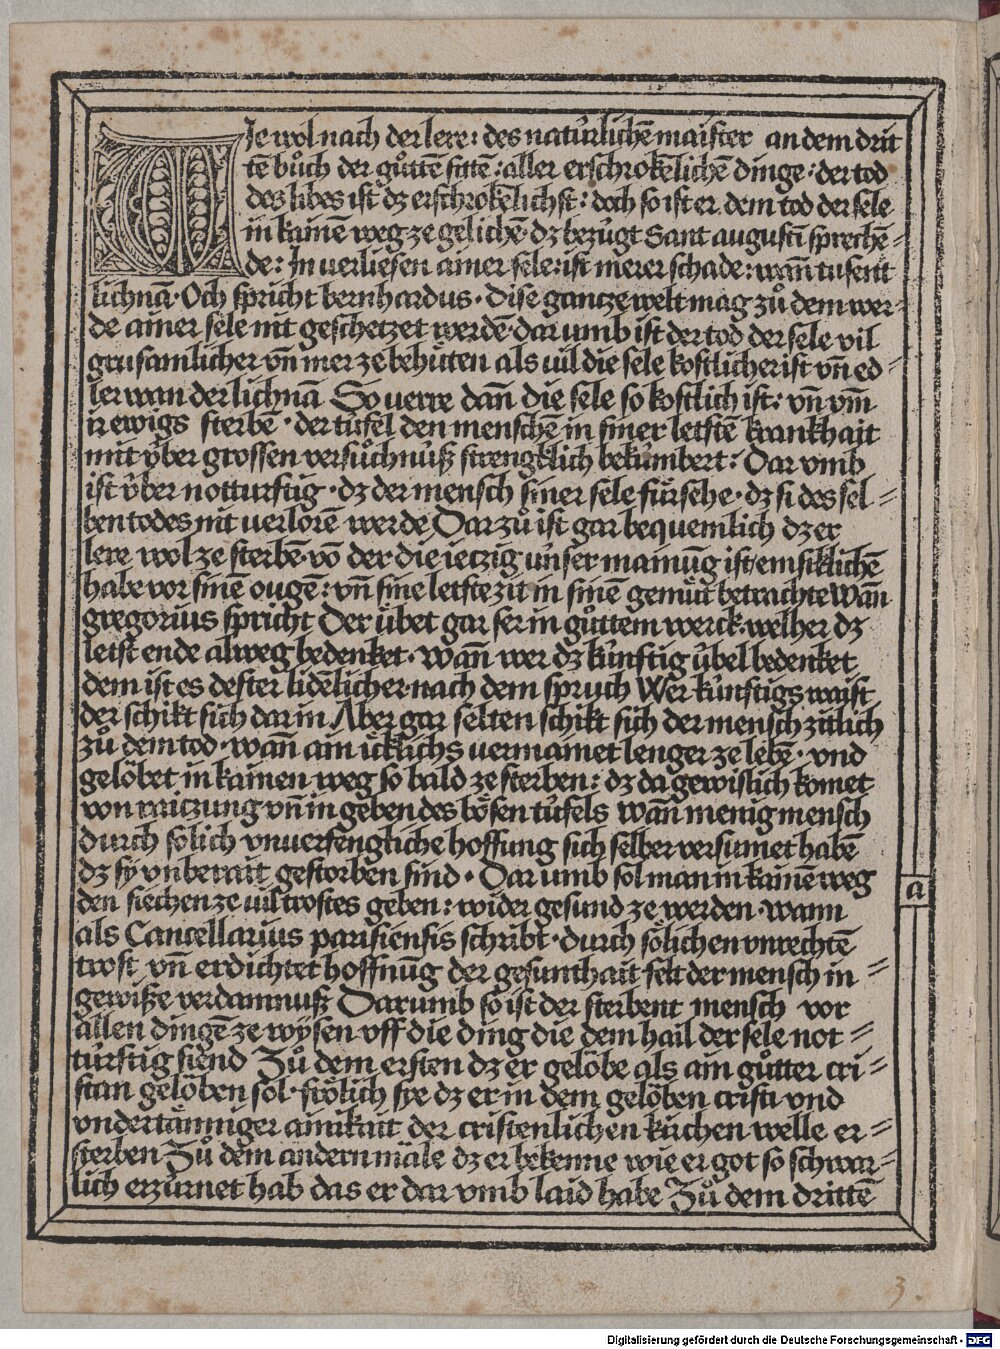 WIe wol nach der lere: des natúrlichē maister an dem drit
tē bůch der gůttē sittē: aller erschrokēlichē dinge· der tod
des libes ist dz erschrokēlichst: doch so ist er dem tod der sele
in kainē weg ze gelichē· dz bezúgt Sant augusti sprechē=
de: In verliesen ainer sele: ist merer schade: wañ tusent
lichnā· Och spricht bernhardus· dise gantze welt mag zů dem wer=
de ainer sele nit geschetzet werdē· dar umb ist der tod der sele vil
grusamlicher vñ mer ze behůten als vil die sele kostlicher ist vñ ed=
ler wan der lichnā So verre dañ die sele so kostlich ist: vñ vm̄
ir ewigs sterbē· der túfel den menschē in siner letstē krankhait
mit v́ber grossen versůchnúß strengklich bekúmbert: Dar vmb
ist v́ber notturftig· dz der mensch siner sele fúrsehe· dz si des sel=
ben todes nit verlorē werde Dar zů ist gar bequemlich dz er
lere wol ze sterbē· vō der die ietzig vnser mainūg ist/ emsiklichē
habe vor sinē ougē: vñ sine letste zit in sinē gemút betrachte Wañ
gregorius spricht Der úbet gar ser in gůttem werck· welher dz
letst ende alweg bedenket· Wañ wer dz kúnftig úbel bedenket
dem ist es dester lidēlicher· nach dem spruch Wer kúnftigs waist
der schikt sich dar in Aber gar selten schikt sich der mensch zitlich
zů dem tod· wañ ain ieklichs vermainet lenger ze lebē· vnd
gelöbet in kainen weg so bald ze sterben: dz da gewislich komet
von raitzung vñ in geben des bösen túfels Wañ menig mensch
durch solich vnuerfengliche hoffung sich selber versumet habē
dz sy vnberait gestorben sind· Dar umb sol man in kainē weg
den siechen ze vil trostes geben: wider gesund ze werden· wann
als Cancellarius parisiensis schribt· durch sölichen vnrechtē
trost vñ erdichtet hoffnūg der gesunthait felt der mensch in=
gewiße verdamnuß Darumb so ist der sterbent mensch vor
allen dingē ze wysen vff die ding die dem hail der sele not=
túrftig siend Zů dem ersten dz er gelöbe als ain gůtter cri=
stan gelöben sol· frölich sye dz er in dem gelöben cristi vnd
vndertäniger ainikait der cristenlichen kirchen welle er=
sterben Zů dem andern måle dz er bekenne wie er got so schwar=
lich erzúrnet hab das er dar vmb laid habe Zů dem drittē
a
3
Digitalisierung gefördert durch die Deutsche Forschungsgemeinschaft - DFG